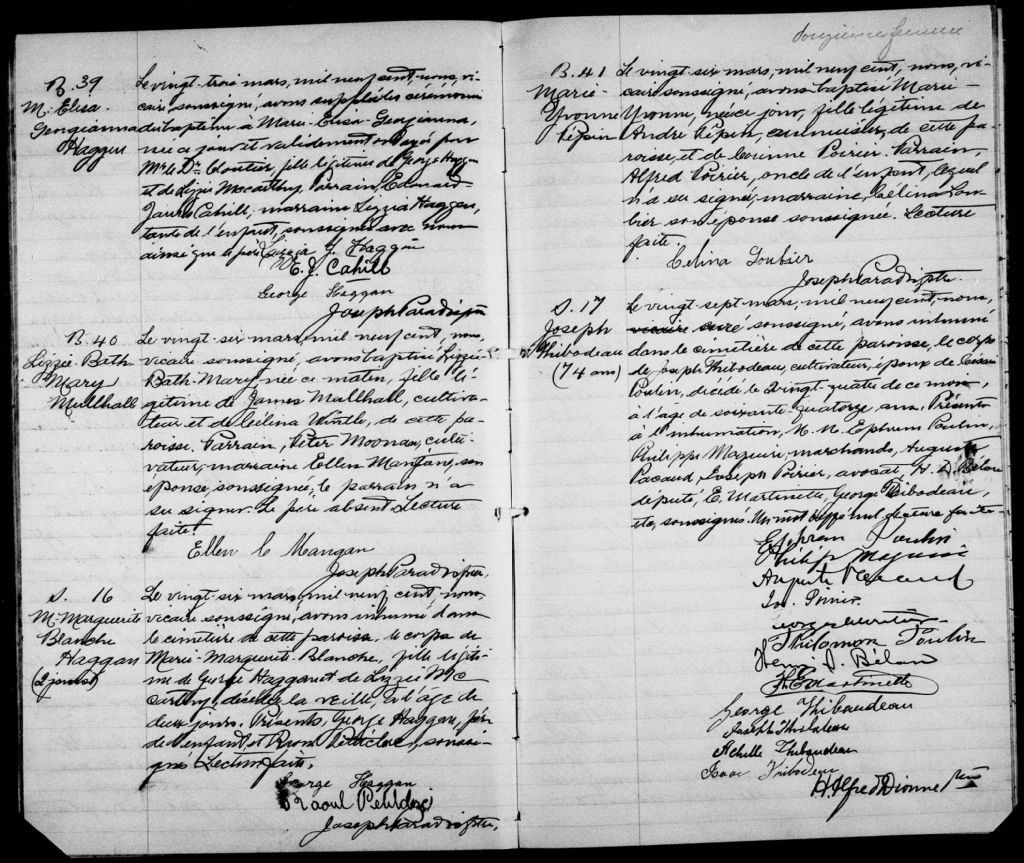 B. 39
M. Elisa
Georgianna
Haggan
Le vingt-trois mars, mil neuf cent, nous, vi-
caire soussigné, avons suppléé les cérémonies
du baptême à Marie-Elisa-Georgianna,
née ce jour et validement ondoyée par
Mr. le Dr. Cloutier, fille légitime de George Haggan
et de Lizzie Mccarthy. Parrain, Edouard
James Cahill, marraine Lizzia Haggan,
tante de l'enfant, soussignés avec nous
ainsi que le père
Lizzia J. Haggan
E. J. Cahill
George Haggan
Joseph Paradis ptre
B. 40
Lizzie-Bath-
Mary
Mullhall
Le vingt-six mars, mil neuf cent, nous,
vicaire soussigné, avons baptisé Lizzie-
Bath-Mary, née ce matin, fille lé-
gitime de James Mullhall, cultiva-
teur et de Célina, de cette pa-
roisse. Parrain, Peter Moonan, culti-
vateur, marraine Ellen Mangan, son
épouse, soussignée; le parrain n'a
su signer. Le père absent. Lecture
faite.
Ellen C Mangan
Joseph Paradis ptre.
S. 16
M. Marguerite
Blanche
Haggan
(2 jours)
Le vingt-six mars, mil neuf cent, nous,
vicaire soussigné, avons inhumé dans
le cimetière de cette paroisse, le corps de
Marie-Marguerite-Blanche, fille légiti-
me de George Haggan et de Lizzie Mc
carthy, décédée la veille, à l'âge de
deux jours. Présents, George Haggan, père
de l'enfant et, soussi-
gnés Lecture faite.
George Haggan
Raoul
Joseph Paradis ptre.
douzième feuillet
B. 41
Marie-
Yvonne
Pépin
Le vingt-six mars, mil neuf cent, nous, vi-
caire soussigné, avons baptisé Marie-
Yvonne, née ce jour, fille légitime de
André Pépin, menuisier, de cette pa-
roisse, et de Corinne Poirier. Parrain,
Alfred Poirier, oncle de l'enfant, lequel
n'a su signer, marraine, Célina Lou-
bier son épouse soussignée. Lecture
faite.
Celina Loubier
Joseph Paradis ptre.
S. 17
Joseph
Thibodeau
(74 ans)
Le vingt-sept mars, mil neuf cent, nous,
vicaire curé soussigné, avons inhumé
dans le cimetière de cette paroisse, le corps
de Joseph Thibodeau, cultivateur, époux de
Poulin, décédé le vingt-quatre de ce mois,
à l'âge de soixante-quatorze ans. Présents
à l'inhumation, M. M. Ephrem Poulin,
Philippe Maguire, marchands, Auguste
Pacaud, Joseph Poirier, avocat, H. S. Béland
député, E. Martinette, George Thibodeau,
etc, soussignés. Un mot biffé nul. Lecture faite.
Ephrem Poulin
Philip Maguire
Auguste Pacaud
Jos. Poirier
Philomon Poulin
Henri S. Béland
H E Martinette
George Thibaudeau
Joseph Thibodeau
Achille Thibaudeau
Isaac Thibodeau
H. Alfred Dionne ptre